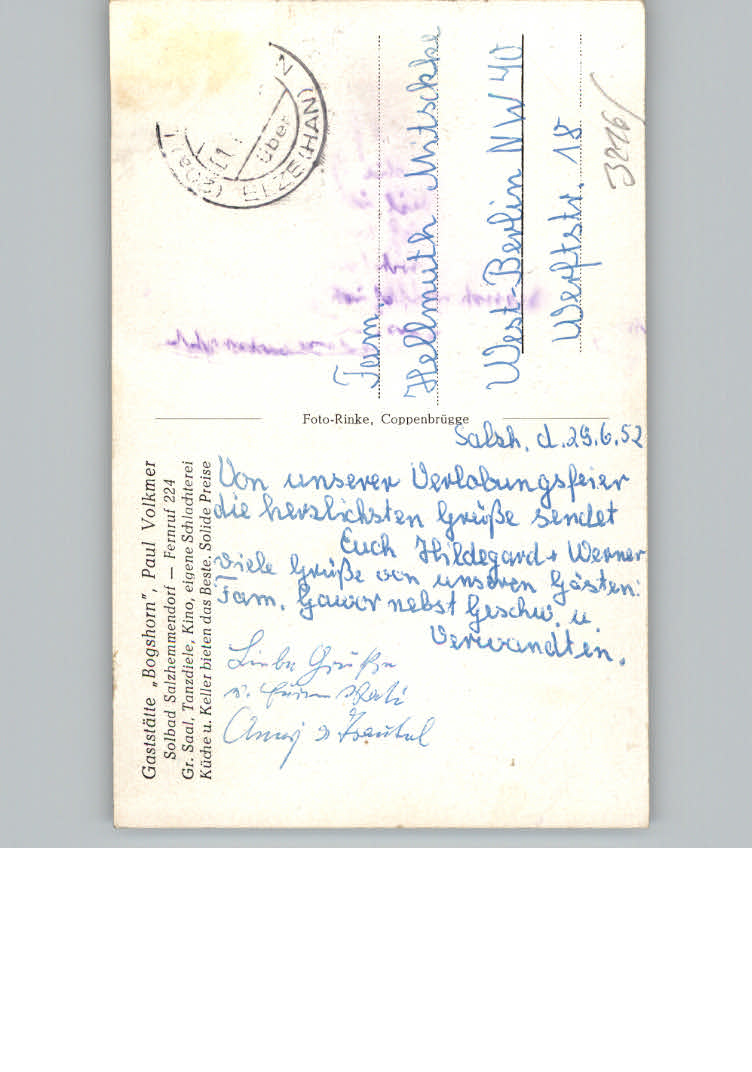 Gaststätte „Bogshorn", Paul Volkmer
Solbad Salzhemmendorf — Fernruf 224
Gr. Saal, Tanzdiele, Kino, eigene Schlachterei
Küche u. Keller bieten das Beste. Solide Preise
Foto-Rinke, Coppenbrügge
Salzh. d. 29.6.52
Von unserer Verlobungsfeier
die herzlichsten Grüße sendet
Euch Hildegard + Werner
Viele Grüße von unseren Gästen:
Fam. Gawor nebst Geschw. u.
Verwandten.
Liebe Grüße
v.
über
ELZE (HAN)
Fam.
Hellmuth Mitschke
West-Berlin NW 40
Werftstr. 18
3216/